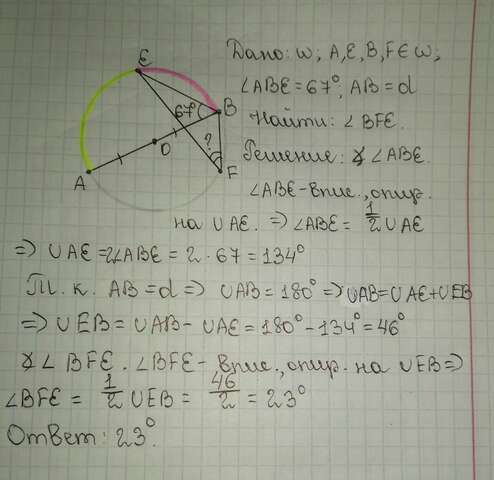 E
67°
B
?
O
F
A
Дано: ω; A, E, B, F ∈ ω;
∠ABE = 67°; AB = d
Найти: ∠BFE.
Решение: ∠ABE.
∠ABE - впис., опир.
на ∪AE. ⇒ ∠ABE = 1/2 ∪AE
⇒ ∪AE = 2∠ABE = 2 · 67 = 134°
Т. к. AB = d ⇒ ∪AB = 180° ⇒ ∪AB = ∪AE + ∪EB
⇒ ∪EB = ∪AB - ∪AE = 180° - 134° = 46°
∠BFE. ∠BFE - впис., опир. на ∪EB ⇒
∠BFE = 1/2 ∪EB = 46/2 = 23°
Ответ: 23°.